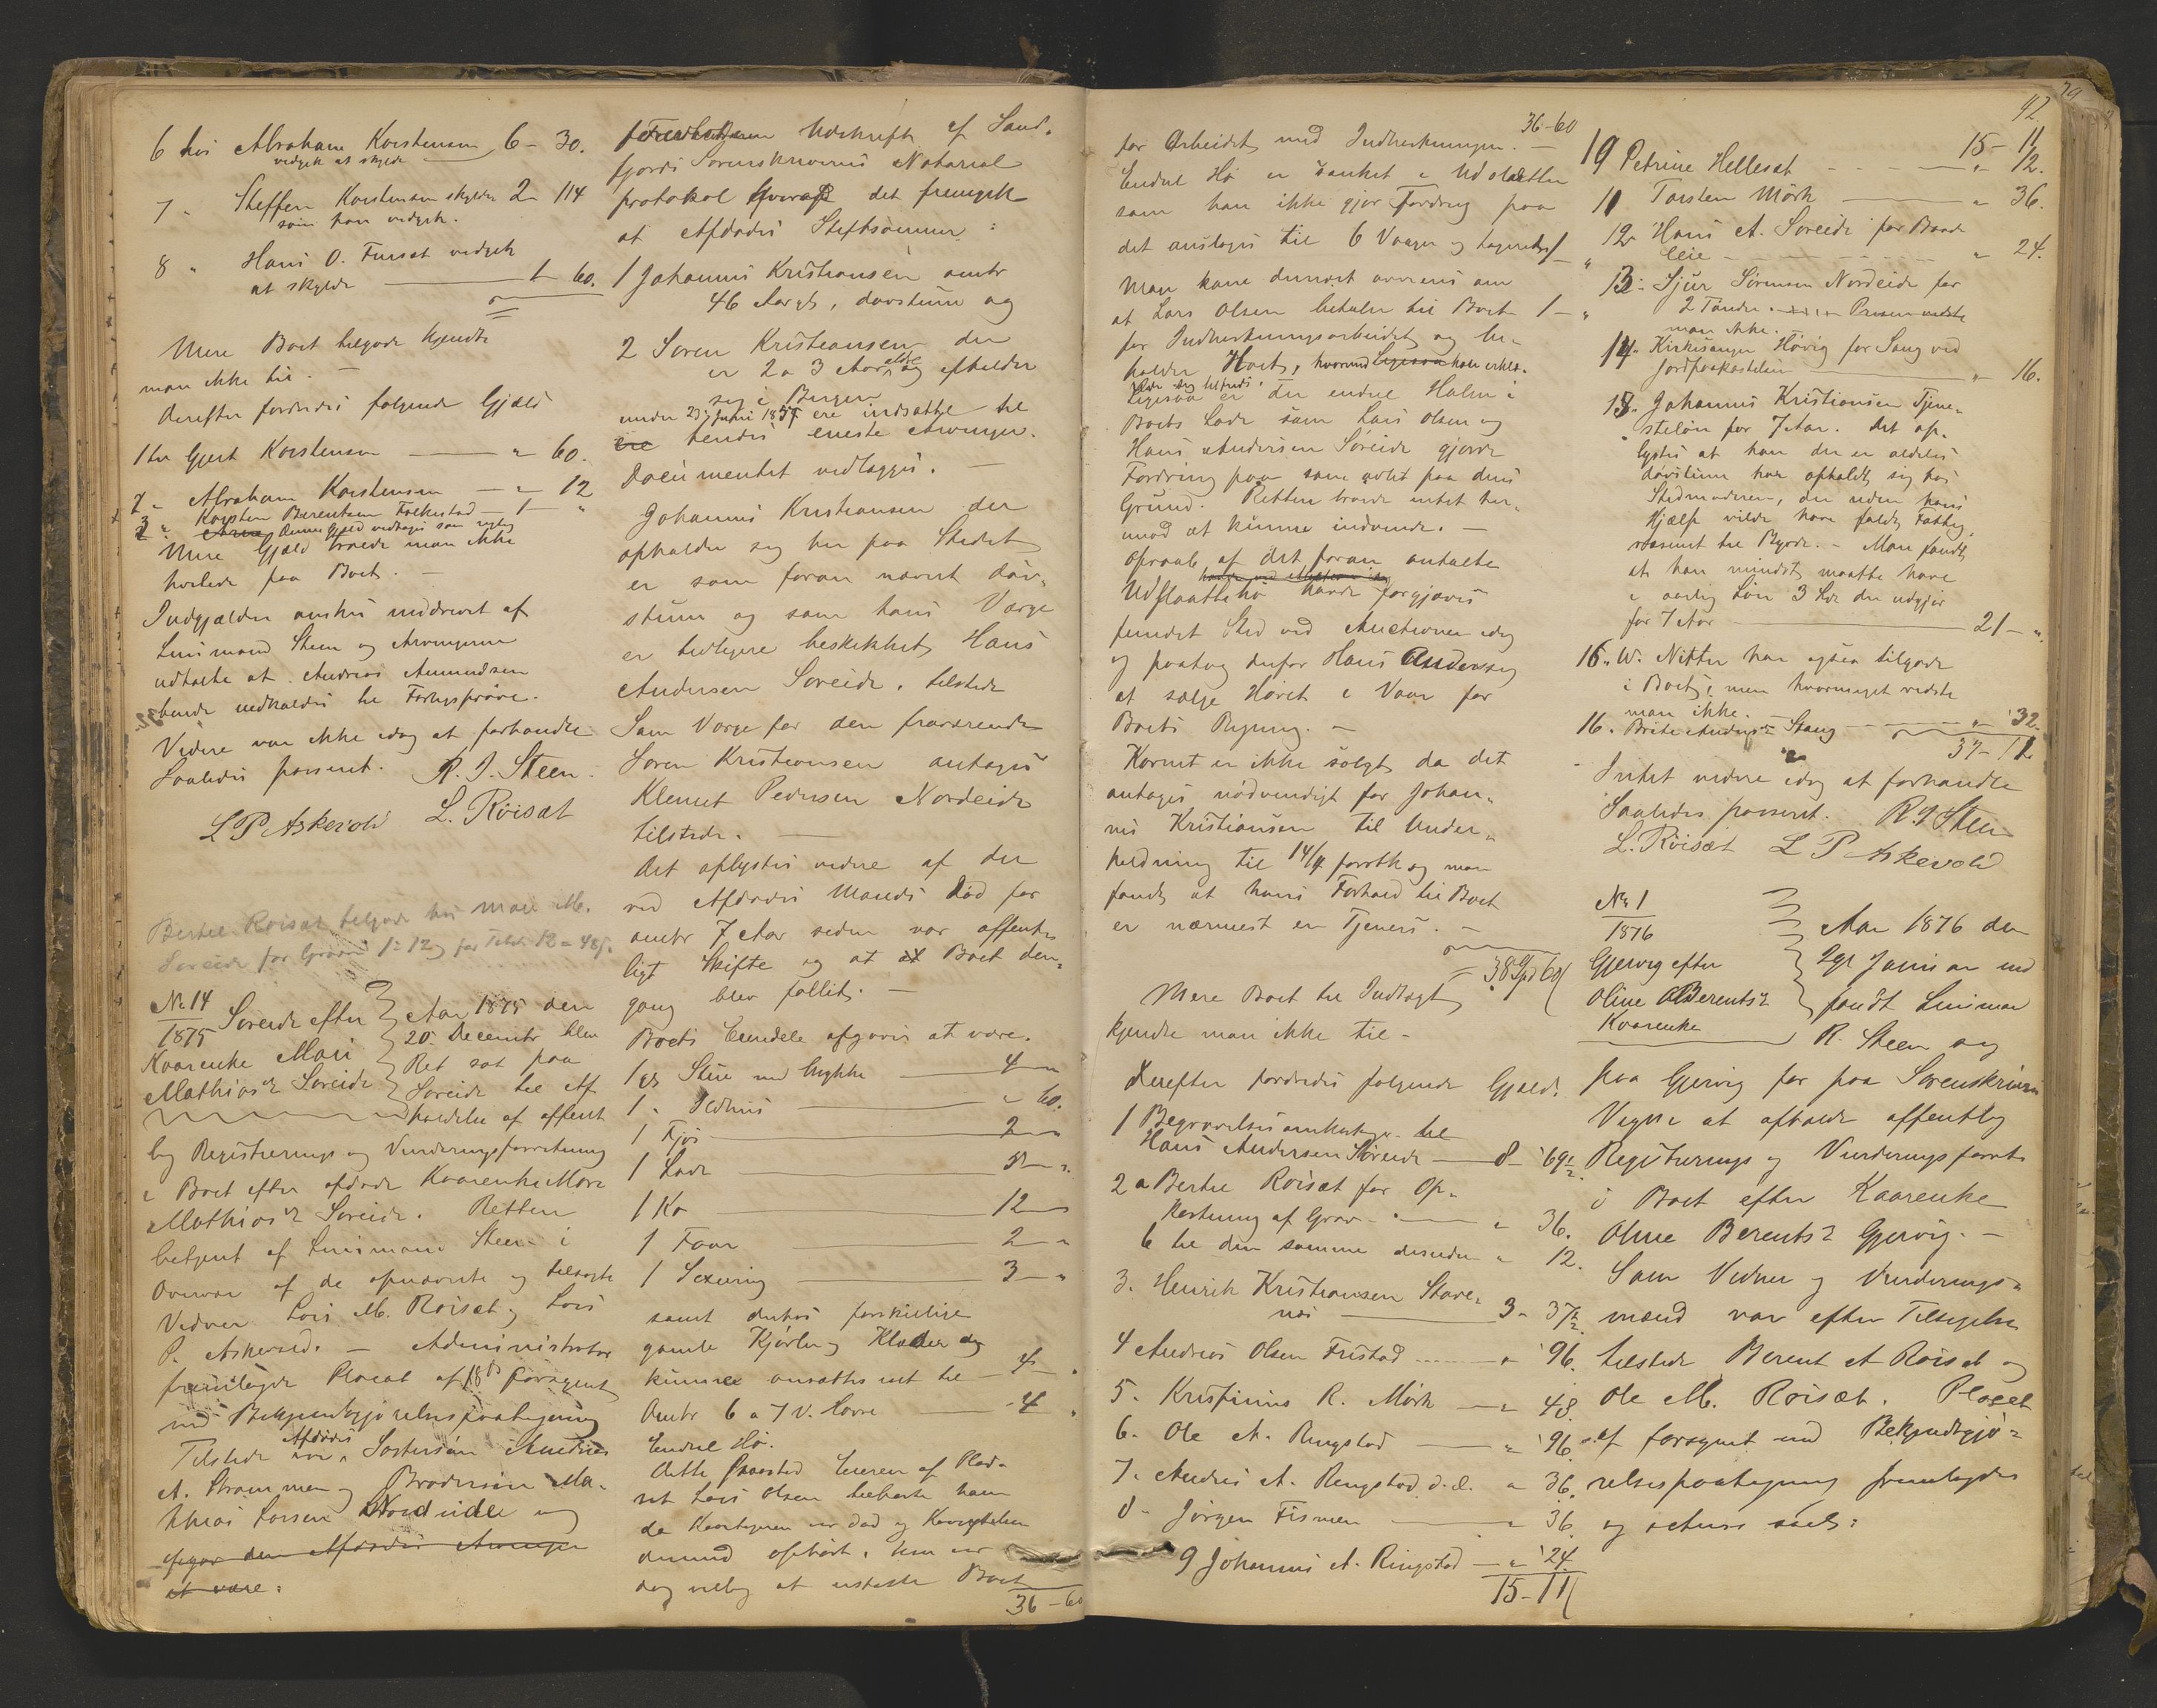 6 hos Abraham Karstensen 6 - 30.
vedgik at skylde
7 " Steffen Karstensen skylder 2 - 114
som han vedgik.
8 " Hans O. Fureset vedgik
at skylde 1 60.
Mere Boet tilgode kjendte
man ikke til. -
Derefter fordredes følgende Gjæld
1 til Gjert Karstensen " 60.
2 " Abraham Karstensen " 12
3 " Karsten Berentsen Folkestad - 1 "
denne Gjæld vedtoges som rigtig
Mere Gjæld troede man ikke
heftede paa Boet. -
Indgjælden ønskes inddrevet af
Lensmand Steen og Arvingerne
udtalte at Andreas Amundsen
burde indkaldes til Forligsprøve.
Videre var ikke idag at forhandle
Saaledes passeret. R. J. Steen.
L P Askevold L. Röisæt
Bertel Röisæt tilgode hos Mari M.
Søreide for Graven 1 = 12
No 14
1875 Søreide efter
Kaarenke Mari
Mathiasdr Søreide
Aar 1875 den
20 December blev
Ret sat paa
Søreide til Af-
holdelse af offent
lig Registrerings og Vurderingsforretning
i Boet efter afdøde Kaarenke Mari
Mathiasdr Søreide. Retten
betjent af Lensmand Steen i
Overvær af de opnævnte og tilsagte
Vidner Lars M. Röisæt og Lars
P. Askevold. - Administrator
fremlagde Placat af 18ds forsynet
med Bekjendtgjørelsespaategning
Tilstede var Afdødes Søstersøn Andreas
A. Strømmen og Brodersøn Ma-
thias Larsen Nordeide og
opgav den Afdødes Arvinger
at være:
fremlagde en Udskrift af Sønd-
fjords Sorenskriveries Notarial
protokol hvoraf det fremgik
at Afdødes Stefsønner:
1 Johannes Kristiansen omtr
46 Aar gl, døvstum og
2 Søren Kristiansen der
er 2 a 3 Aar ældre og opholder
sig i Bergen
under 23 Juni 1857 ere indsatte til
ere hendes eneste Arvinger.
Documentet vedlægges. -
Johannes Kristiansen der
opholder sig her paa Stedet
er som foran nævnt døv-
stum og som hans Værge
er tidligere beskikket Hans
Andersen Søreide, tilstede
Som Værge for den fraværende
Søren Kristiansen antages
Klemet Pedersen Nordeide
tilstede. -
Det oplystes videre af der
ved Afdødes Mands Død for
omtr 7 Aar siden var offent-
ligt Skifte og at Boet den-
gang blev fallit. -
Boets Eiendele opgaves at være.
1 gl Stue med Kjøkken 4 "
1 " Ildhus " 60.
1 Fjøs 2 "
1 Lade 5 "
1 Ko 12 "
1 Faar 2 "
1 Sexæring 3 - "
samt endvis forskjellige
gamle Kjørler og Klæder der
kunne ansættes rut til - 4 - "
Omtr 6 a 7 V. Havre - 4 "
Endel Hø.
Dette paastod Eieren af Plad-
set Lars Olsen tilhørte ham
da Kaartegeren var død og Kontrakten
dermed ophørt, han var
dog villig at erstatte Boet
36 - 60
36 - 60
for Arbeidet med Indhøstningen. -
Endel Hø er sanket i Udslætter
som han ikke gjør Fordring paa
det anslages til 6 Vaager og tageres 1 - "
Man kom dernæst overens om
at Lars Olsen betaler til Boet 1 - "
for Indhøstningsarbeidet og be-
holder Høet, hvormed han erklæ-
rede sig tilfreds.
Ligesaa er der endel Halm i
Boets Lade som Lars Olsen og
Hans Andersen Søreide gjorde
Fordring paa som avlet paa deres
Grund. Retten troede intet her-
imod at kunne indvende. -
Opraab af det foran omtalte
Udslaattehø havde forgjæves
fundet Sted ved Auctionen idag
og paatog derfor Hans Andersen sig
at sælge Høiet i Vaar for
Boets Regning. -
Kornet er ikke solgt da det
antages nødvendigt for Johan-
nes Kristiansen til Under-
holdning til 14/4 førstk og man
fandt at hans Forhold til Boet
er nærmest en Tjeners. -
= 38 Spd 60
Mere Boet til Indtægt
kjendte man ikke til -
Derefter fordredes følgende Gjæld.
1 Begravelsesomkostninger til
Hans Andersen Søreide 8 - 69 1/2
2 a Bertel Röisæt for Op-
kastning af Grav " 36.
b til den samme desuden " 12.
3. Henrik Kristiansen Stave-
næs 3 - 37 1/2
4 Andreas Olsen Fristad " 96.
5. Krispinus R. Mörk " 48.
6. Ole A. Ringstad " 96.
7. Andres A. Ringstad d. æ. " 36.
8 - Jörgen Fismen " 36
9 Johannes A. Ringstad " 24
15 - 11
42
15 - 11
10 Petrine Hellesæt " 12.
11 Torsten Mörk " 36.
12 Hans A. Søreide for Baad
Leie " 24.
13 - Sjur Sørensen Nordeide for
2 Tønder. Prisen vidste
man ikke.
14. Kirkesanger Høvig for Sang ved
Jordpaakastelsen " 16.
15. Johannes Kristiansen Tjene-
steløn for 7 Aar. Det op-
lystes at han der er aldeles
døvstum har opholdt sig hos
Stedmoderen, der uden hans
Hjælp vilde have faldt Fattig
væsenet til Byrde. - Man fandt
at han mindst maatte have
i aarlig Løn 3 Spd der udgjør
for 7 Aar 21 - "
16. W. Nitter har ogsaa tilgode
i Boet, men hvormeget vidste
man ikke.
16. Brite Andersdr Stang " 32
37 - 11
Intet videre idag at forhandle
Saaledes passeret. R. J Steen
L. Röisæt L P Askevold
No 1
1876
Gjervig efter
Oline Berentsdr
Kaarenke
Aar 1876 den
29de Januar ind
fandt Lensman
R. Steen sig
paa Gjervig for paa Sorenskriverens
Vegne at afholde offentlig
Registrerings og Vurderingsforretn
i Boet efter Kaarenke
Oline Berentsdr Gjervig. -
Som Vidner og Vurderings-
mænd var efter Tilsigelse
tilstede Berent A Röisæt og
Ole M. Röisæt. Placat
af forsynet med Bekjendtgjø-
relsespaategning fremlagdes
og acteres saal: